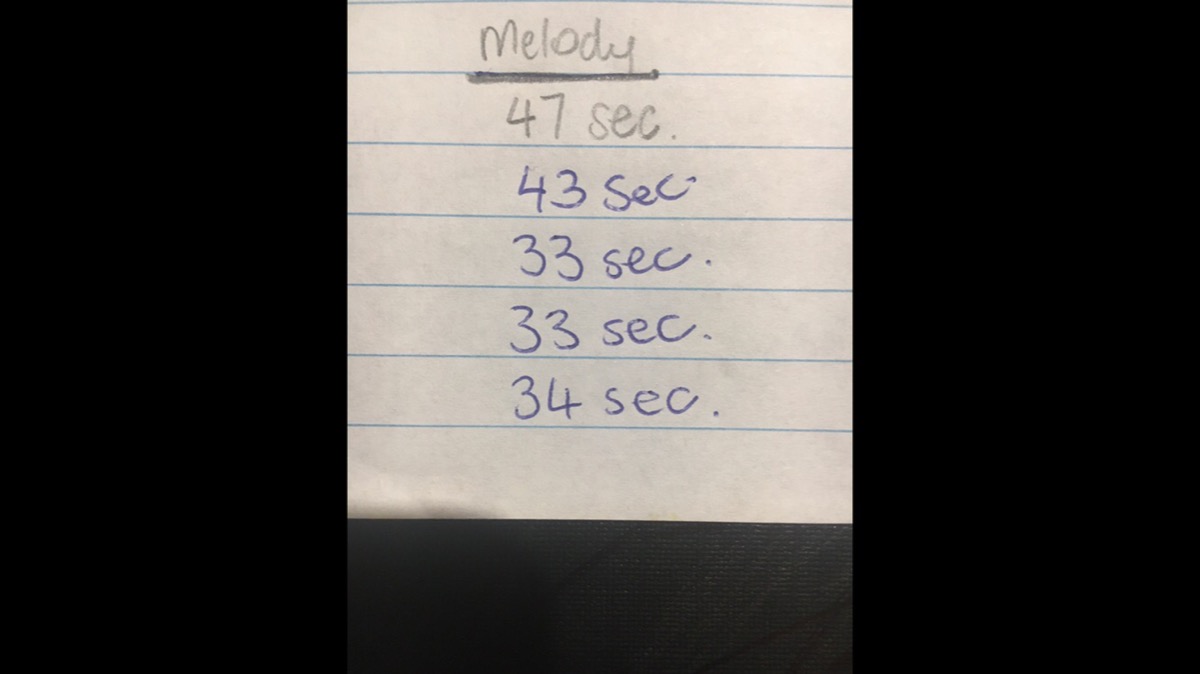 Melody
47 sec.
43 sec.
33 sec.
33 sec.
34 sec.